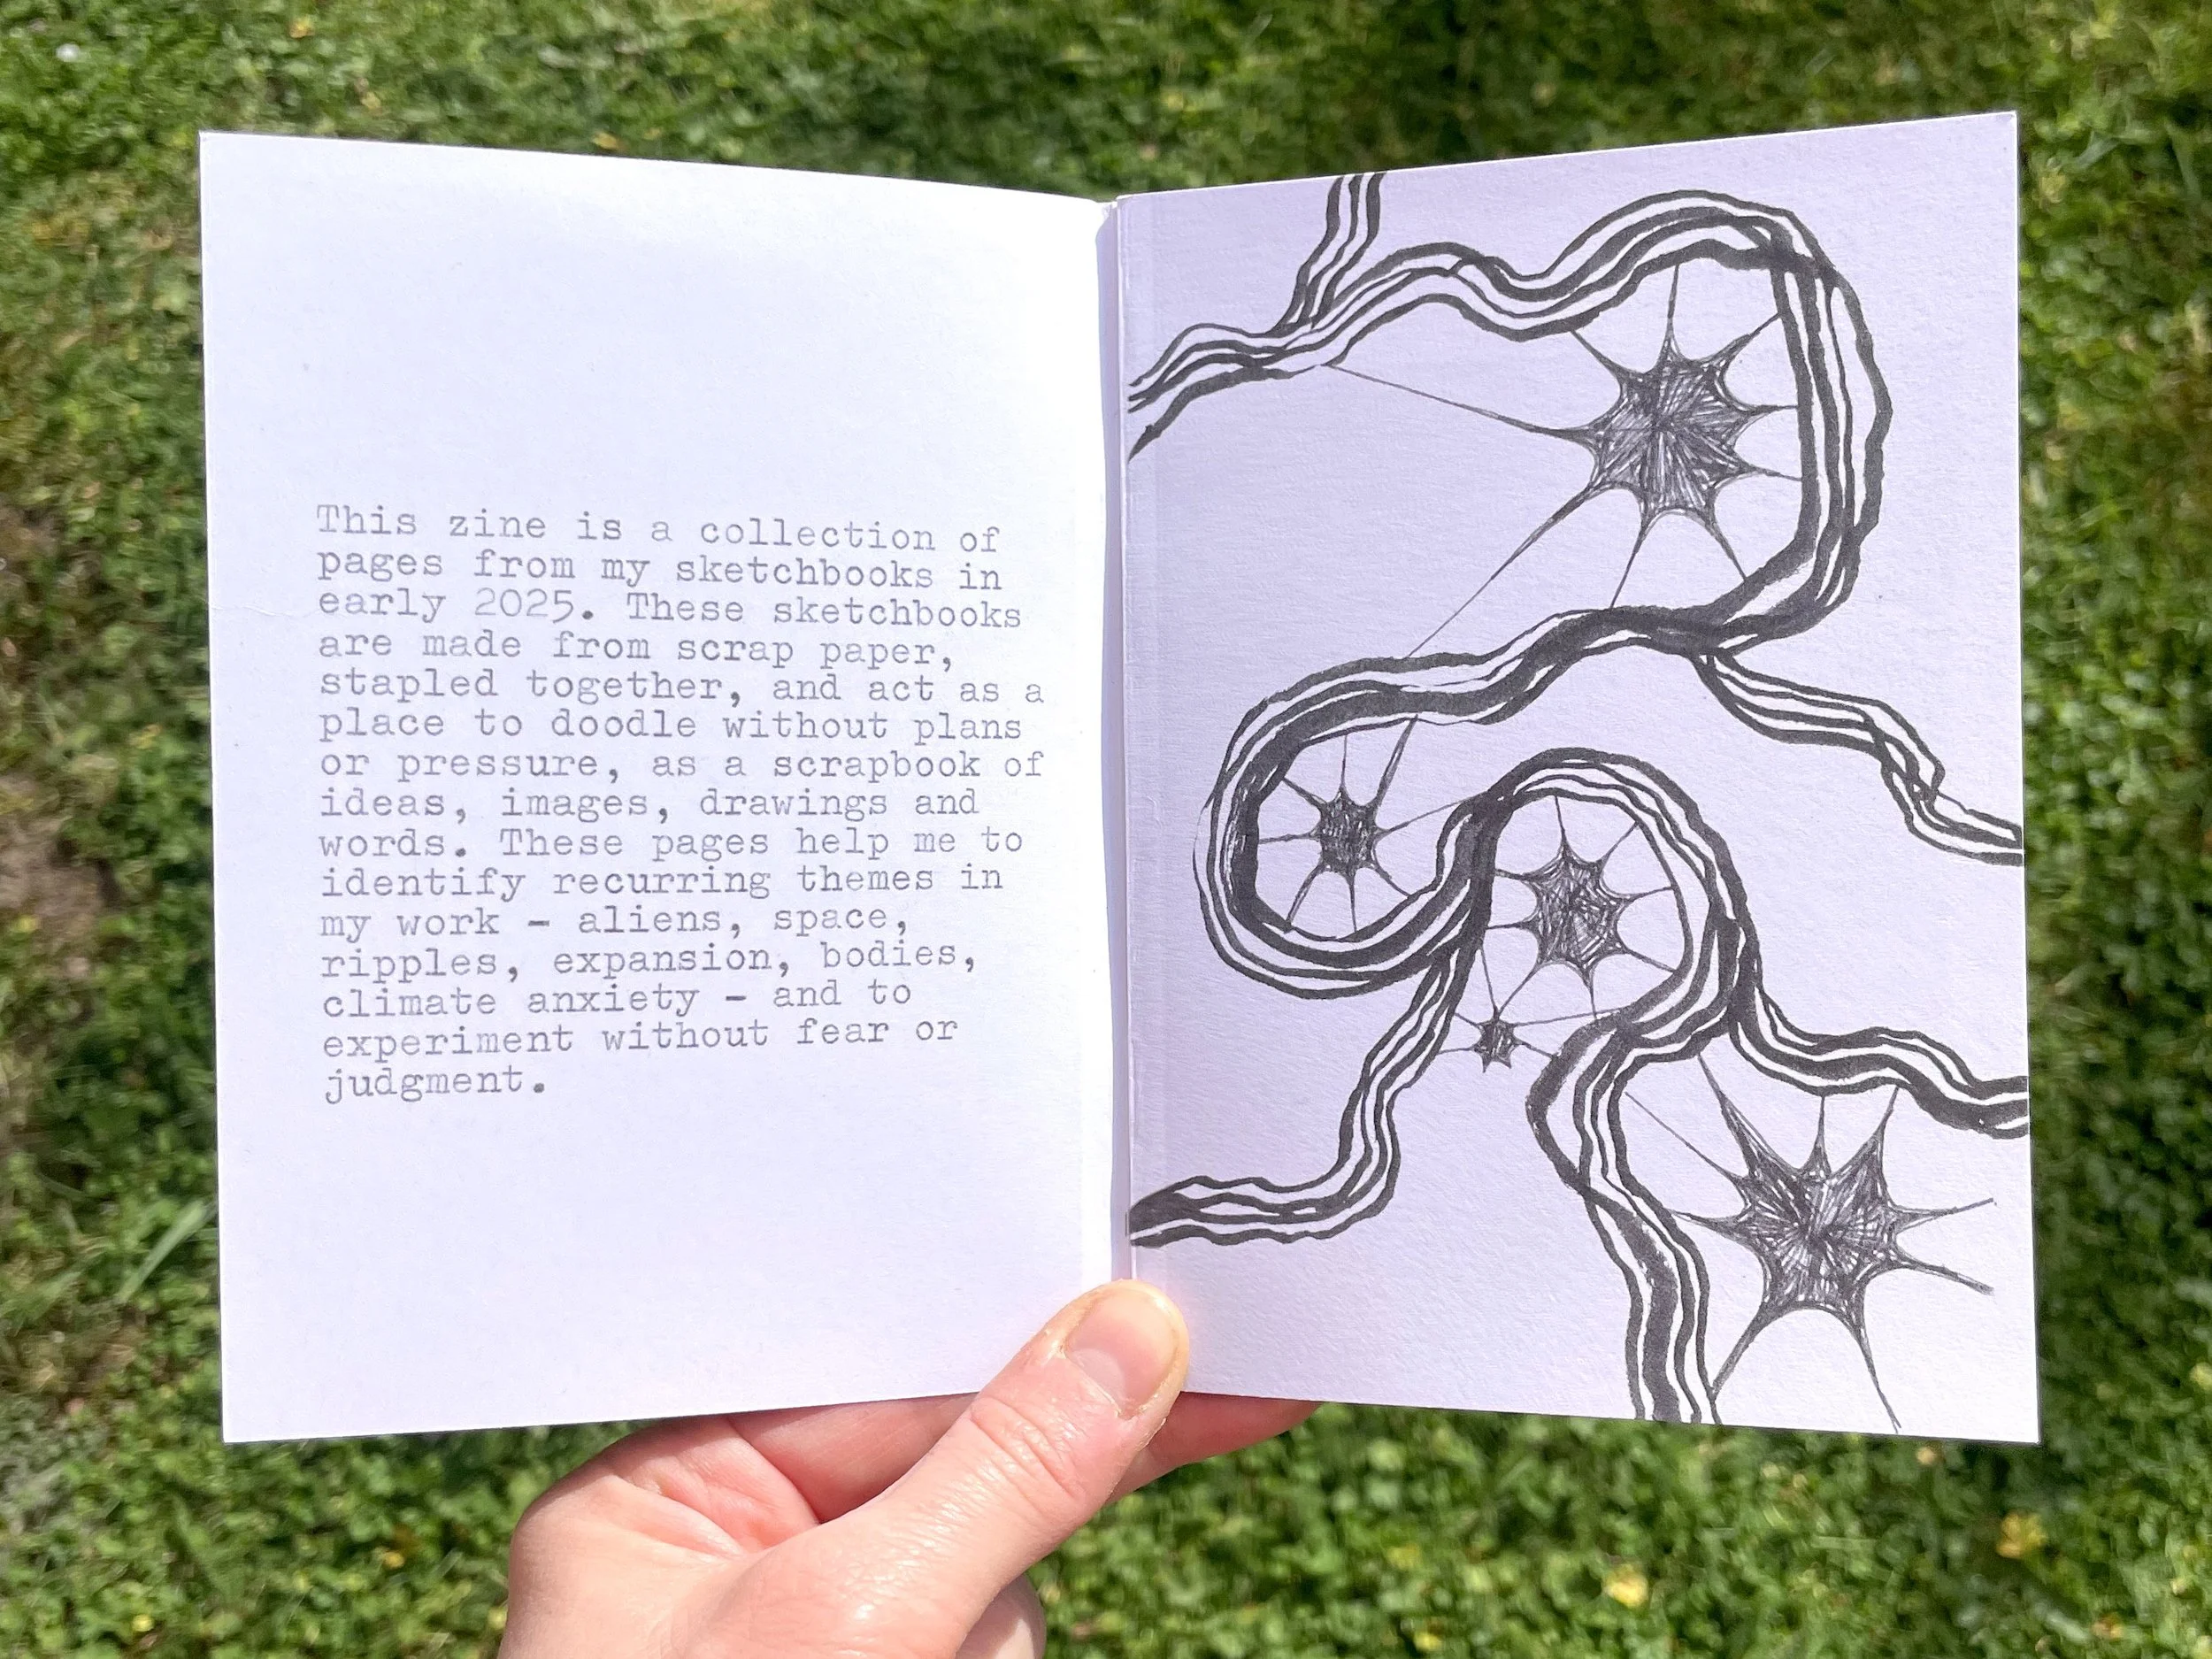 This zine is a collection of
pages from my sketchbooks in
early 2025. These sketchbooks
are made from scrap paper,
stapled together, and act as a
place to doodle without plans
or pressure, as a scrapbook of
ideas, images, drawings and
words. These pages help me to
identify recurring themes in
my work - aliens, space,
ripples, expansion, bodies,
climate anxiety - and to
experiment without fear or
judgment.